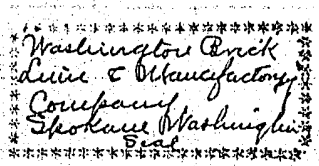 Washington Brick
Lime & Manufactory
Company
Spokane Washington
Seal